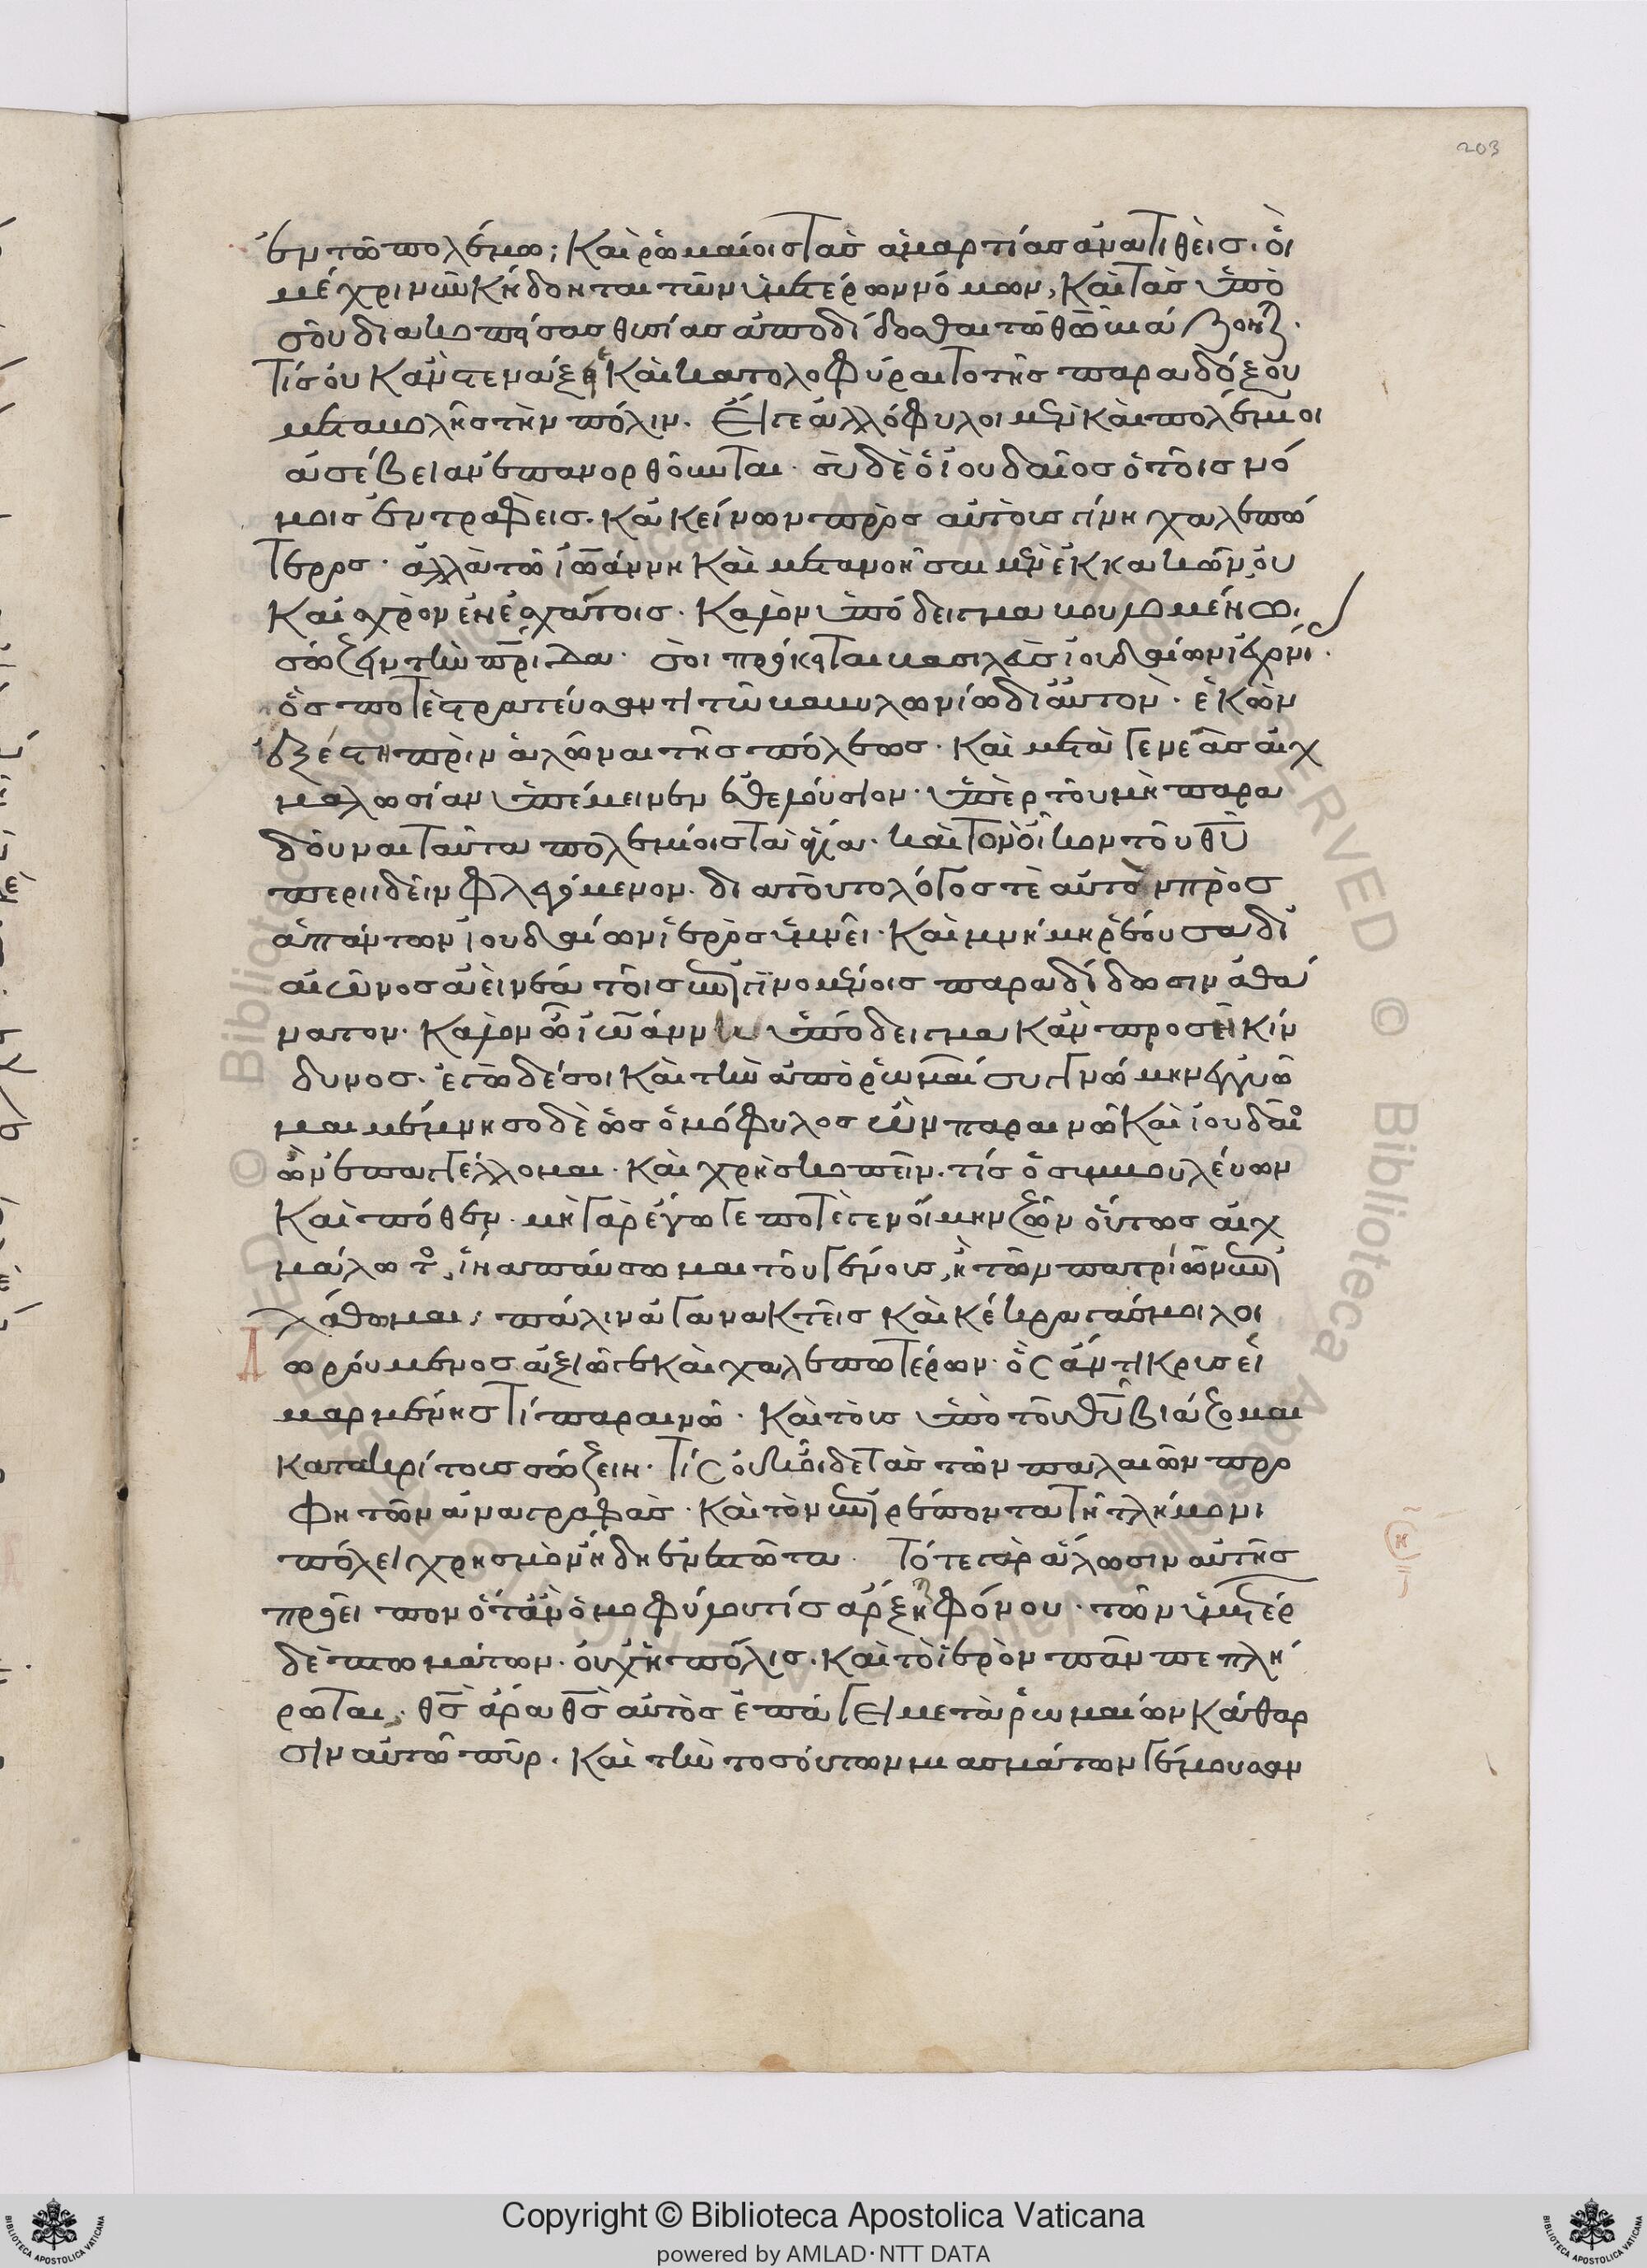 203
ἐν τῷ πολέμω; καὶ ῥωμαίοις τὰς ἁμαρτίας ἀνατιθεὶς. οἳ
μέχρι νῦν κήδονται τῶν ἡμετέρων νόμων, καὶ τὰς ὑπὸ
σοῦ διακοπείσας θυσίας ἀποδίδοσθαι τῶ θῶ βιάζοντ.
τίς οὐκ ἂν στενάξειε καὶ κατολοφύραιτο τῆς παραδόξου
μεταβολῆς τὴν πόλιν. εἴ γε ἀλλόφυλοι μὲν καὶ πολέμιοι
ἀσέβειαν ἐπανορθοῦνται. σὺ δὲ ὁ ἰουδαῖος ὁ τοῖς νό
μοις ἐντραφεὶς. κἀκείνων πρὸς αὐτοὺς γίνη χαλεπώ
τερος. ἀλλὰ τῶ ἰωάννη καὶ μετανοῆσαι μὲν ἐκ κακῶν οὐ
καισχρὸν ἐν ἐσχάτοις. καλὸν ὑπόδειγμα βουλομένω.
σώζειν τὴν πρίδα. σοι πρόκειται βασιλεὺς ἰουδαίων ἰεχονι.
ὅς ποτὲ στρατεύσαντι τῶ βαβυλωνίω δι αὐτὸν. ἑκὼν
ἐξέστη πρὶν ἁλῶναι τῆς πόλεως. καὶ μετὰ γενεᾶς αἰχ
μαλωσίαν ὑπέμεινεν ἐθελούσιον. ὑπὲρ τοῦ μὴ παρα
δοῦναι ταῦτα πολεμίοις τὰ ἅγια. καὶ τὸν οἶκον τοῦ θυ
περιιδεῖν φλεγόμενον. διατοῦτο λόγος τὲ αὐτὸν πρὸς
ἁπάντων ἰουδαίων ἱερὸς ὑμνεῖ. καὶ μνήμη ῥέουσα δι
αἰῶνος ἀεὶ νέα τοῖς ἐπιγινομένοις παραδίδωσιν ἀθά
νατον. καλὸν ὦ ἰωάννη ὑπόδειγμα κἂν προσῆ κίν
δυνος. ἐγὼ δέ σοι καὶ τὴν ἀπὸ ῥωμαί συγγνώμην ἐγγυῶ
μαι μέμνησο δὲ ὡς ὁμόφυλος ὢν παραινῶ καὶ ἰουδαῖο
ὢν ἐπαγγέλλομαι. καὶ χρὴ σκοπεῖν. τίς ὁ συμβουλεύων
καὶ πόθεν. μὴ γὰρ ἔγωγε ποτὲ γενοίμην ζῶν οὕτως αἰχ
μάλωτο, ἵνα παύσωμαι τοῦ γένους, ἢ τῶν πατρίων ἐπι
λάθωμαι; πάλιν ἀγανακτεῖς καὶ κέκραγάς μοι λοι
δωρούμενος. ἄξιός γε καὶ χαλεπωτέρων. ὃς ἄντικρυς εἱ
μαρμένης τί παραινῶ. καὶ τοὺς ὑπὸ τοῦ θυ βιάζομαι
κατακρίτους σώζειν. τίς οὐκ οἶδε τὰς τῶν παλαιῶν προ
φητῶν ἀναγραφὰς. καὶ τὸν ἐπιρρέποντα τῆ τλήμονι
πόλει χρησμὸν ἤδη ἐνεστῶτα. τότε γὰρ ἅλωσιν αὐτῆς
προεῖπον ὅταν ὁμοφύλου τίς ἄρξη φόνου. τῶν ὑμετέρ
δὲ πτωμάτων. οὐχ ἡ πόλις. καὶ τὸ ἱερὸν πᾶν πεπλή
ρωται. θς ἄρα θς αὐτὸς ἐπάγει μετὰ ῥωμαίων κάθαρ
σιν αὐτῶ πῦρ. καὶ τὴν τοσούτων μιασμάτων γέμουσαν
Copyright © Biblioteca Apostolica Vaticana
powered by AMLAD·NTT DATA